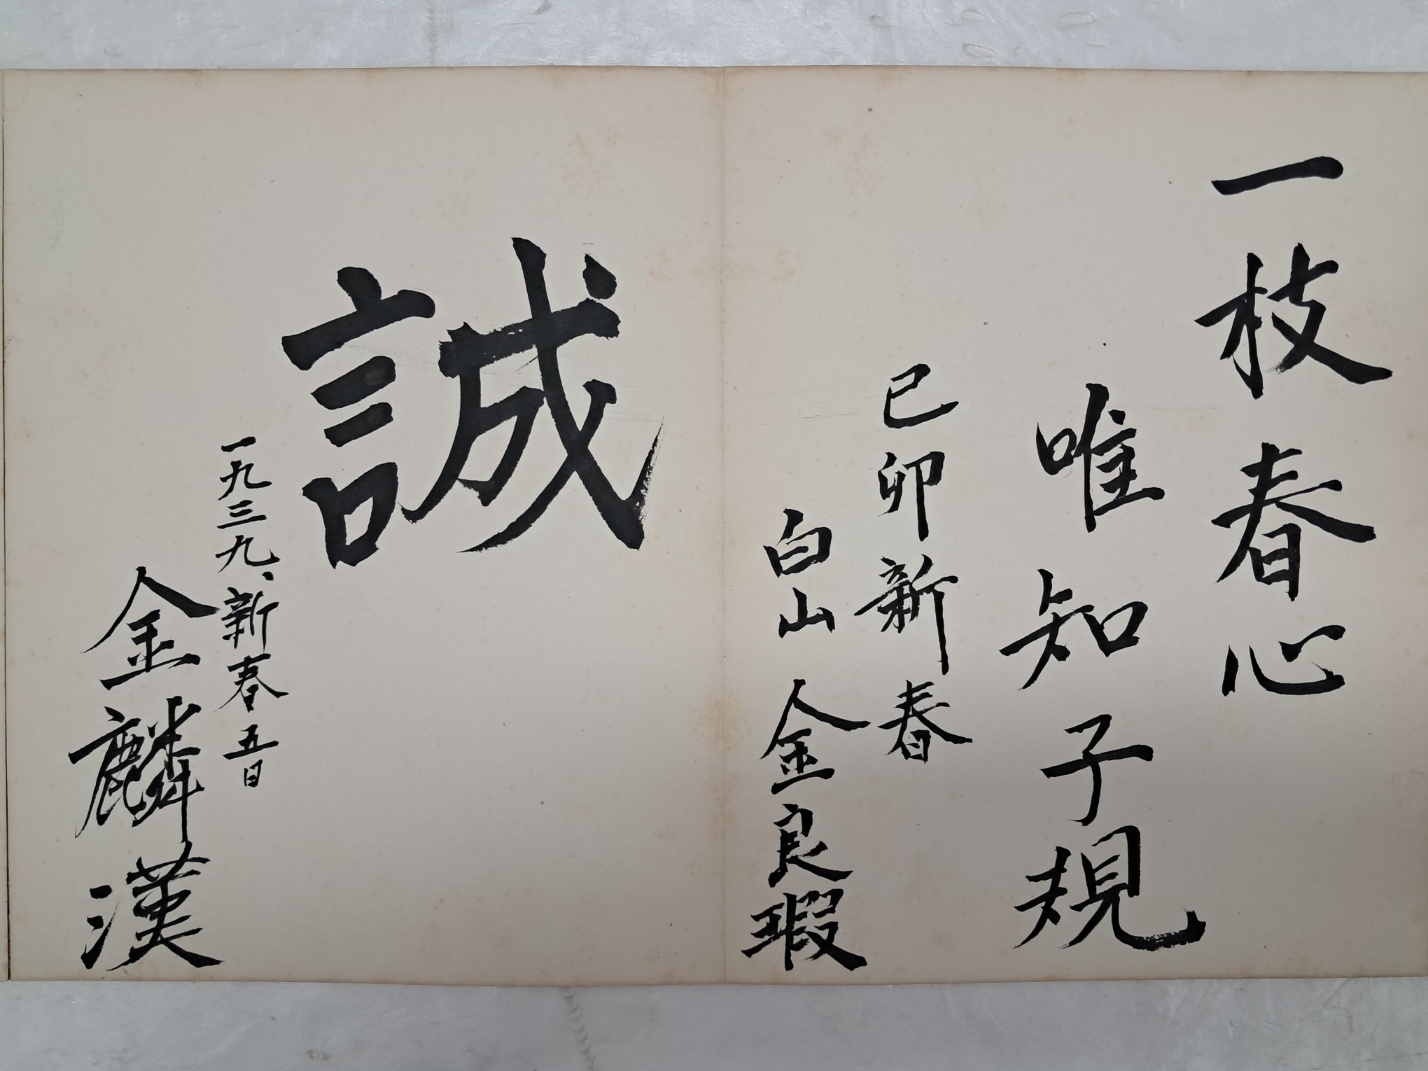 一枝春心
唯知子規
己卯新春
白山 金良瑕
誠
一九三九、新春五日
金麟漢